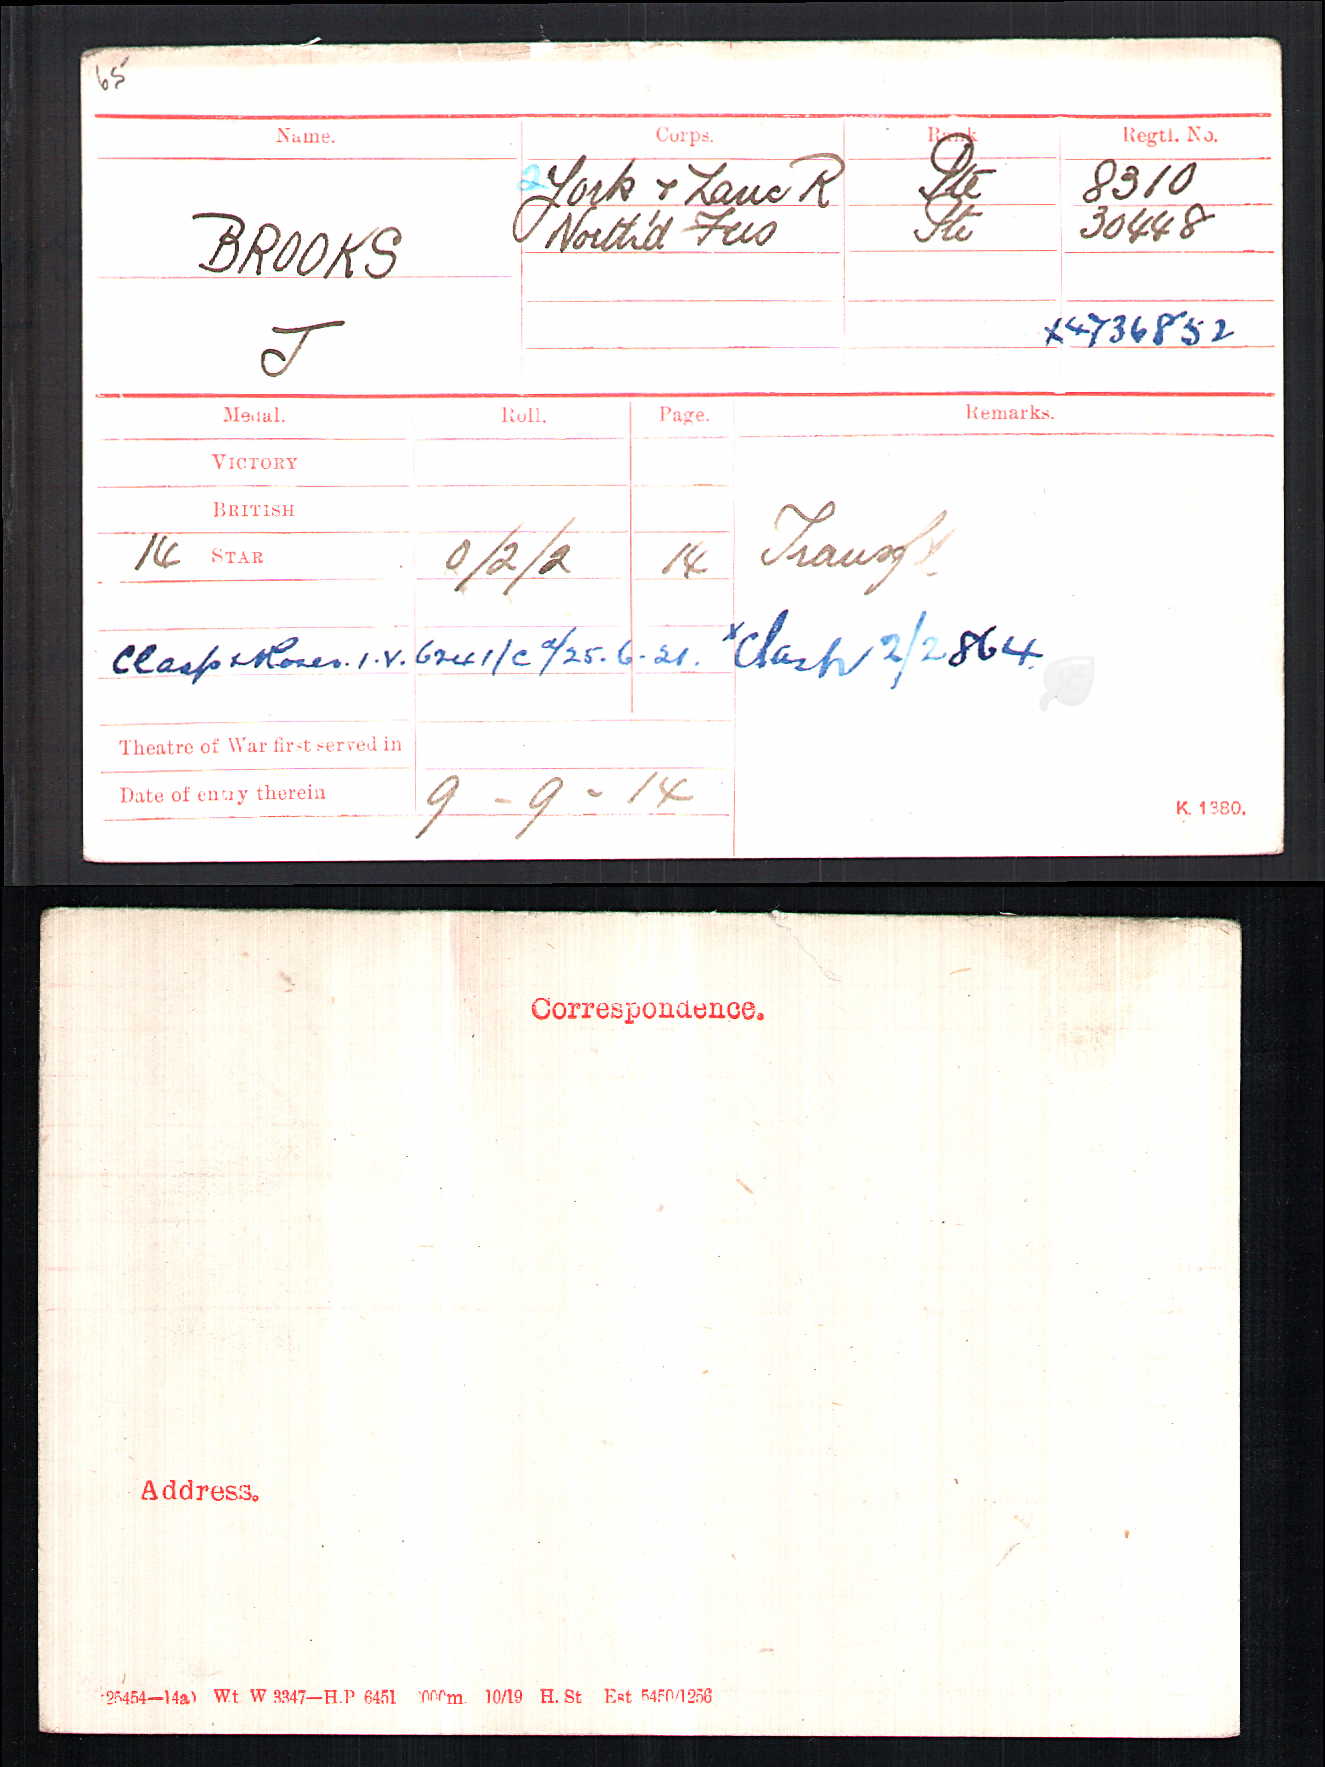 65
Name. Corps. Rank Regtl. No.
2 York & Lanc R Pte 8310
BROOKS North'd Fus Pte 30448
J x4736852
Medal. Roll. Page. Remarks.
VICTORY
BRITISH
14 STAR 0/2/2 14
Clasp & Roses. I.V. 6241/C d/25.6.21. xClasp 2/2864.
Theatre of War first served in
Date of entry therein 9-9-14
K. 1380.
Correspondence.
Address.
Wt W 3347—H.P 6451 10/19 H. St Est 5450/1256